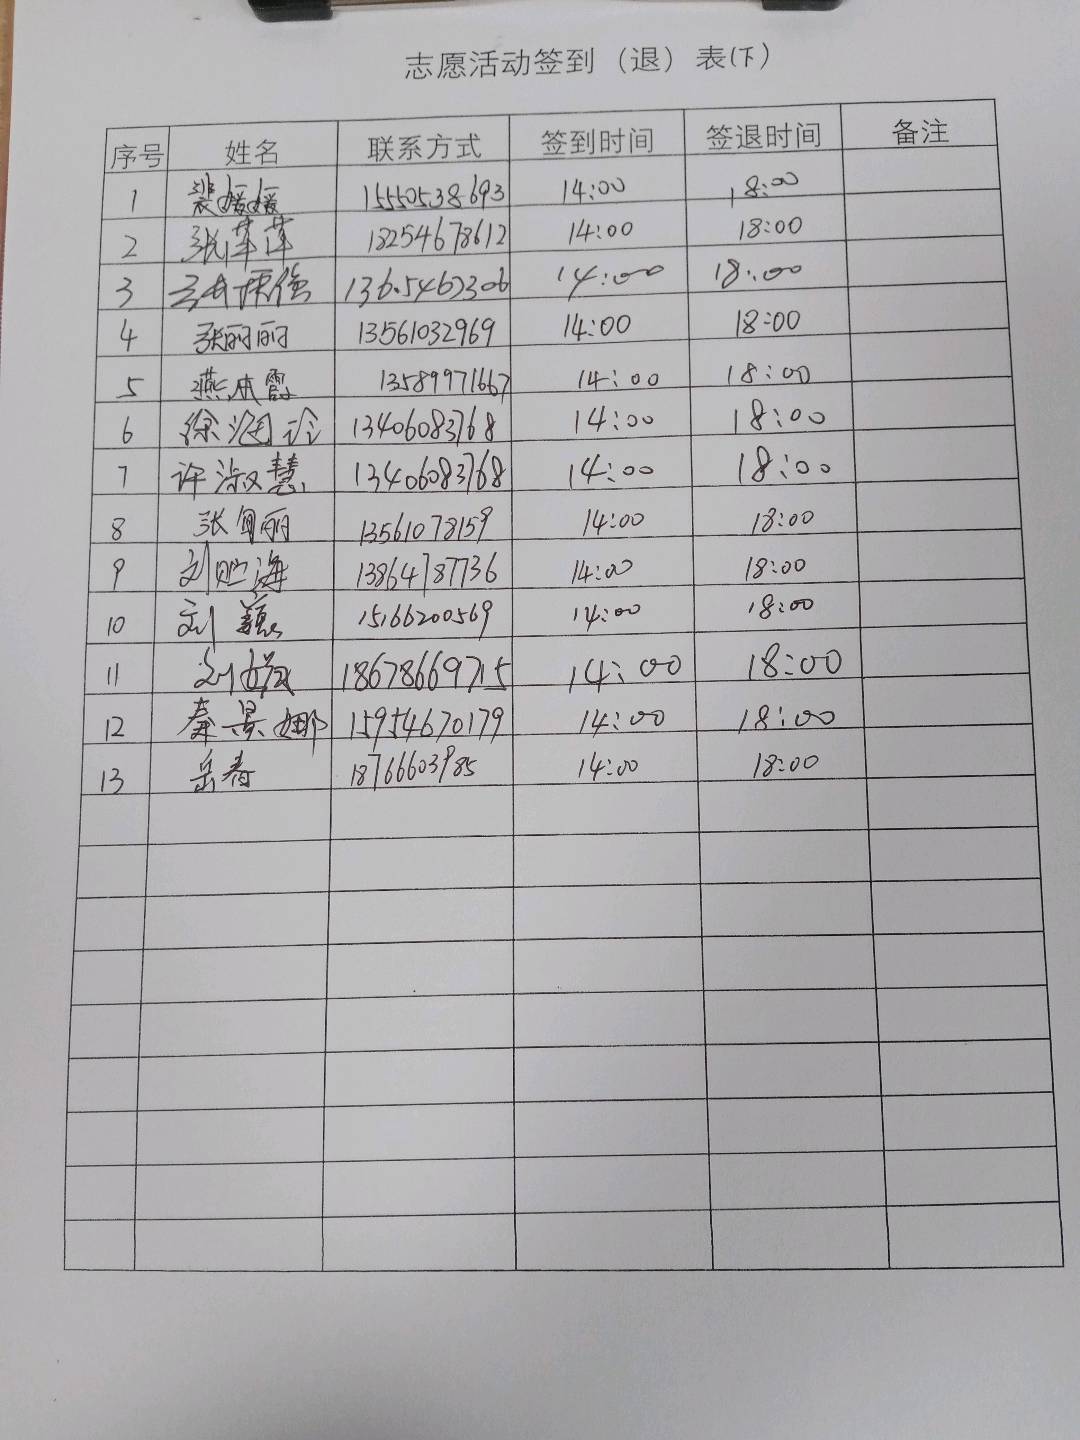 志愿活动签到（退）表(下）
序号 姓名 联系方式 签到时间 签退时间 备注
1 裴媛媛 15550538693 14:00 18:00
2 张萍萍 18254678612 14:00 18:00
3 13605462306 14:00 18:00
4 张丽丽 13561032969 14:00 18:00
5 燕本霞 13589971667 14:00 18:00
6 徐 13406083768 14:00 18:00
7 许淑慧 13406083768 14:00 18:00
8 张 丽 13561078159 14:00 18:00
9 刘 海 13864787736 14:00 18:00
10 刘 15166200569 14:00 18:00
11 刘 18678669715 14:00 18:00
12 秦景娜 15954670179 14:00 18:00
13 岳春 18766603985 14:00 18:00